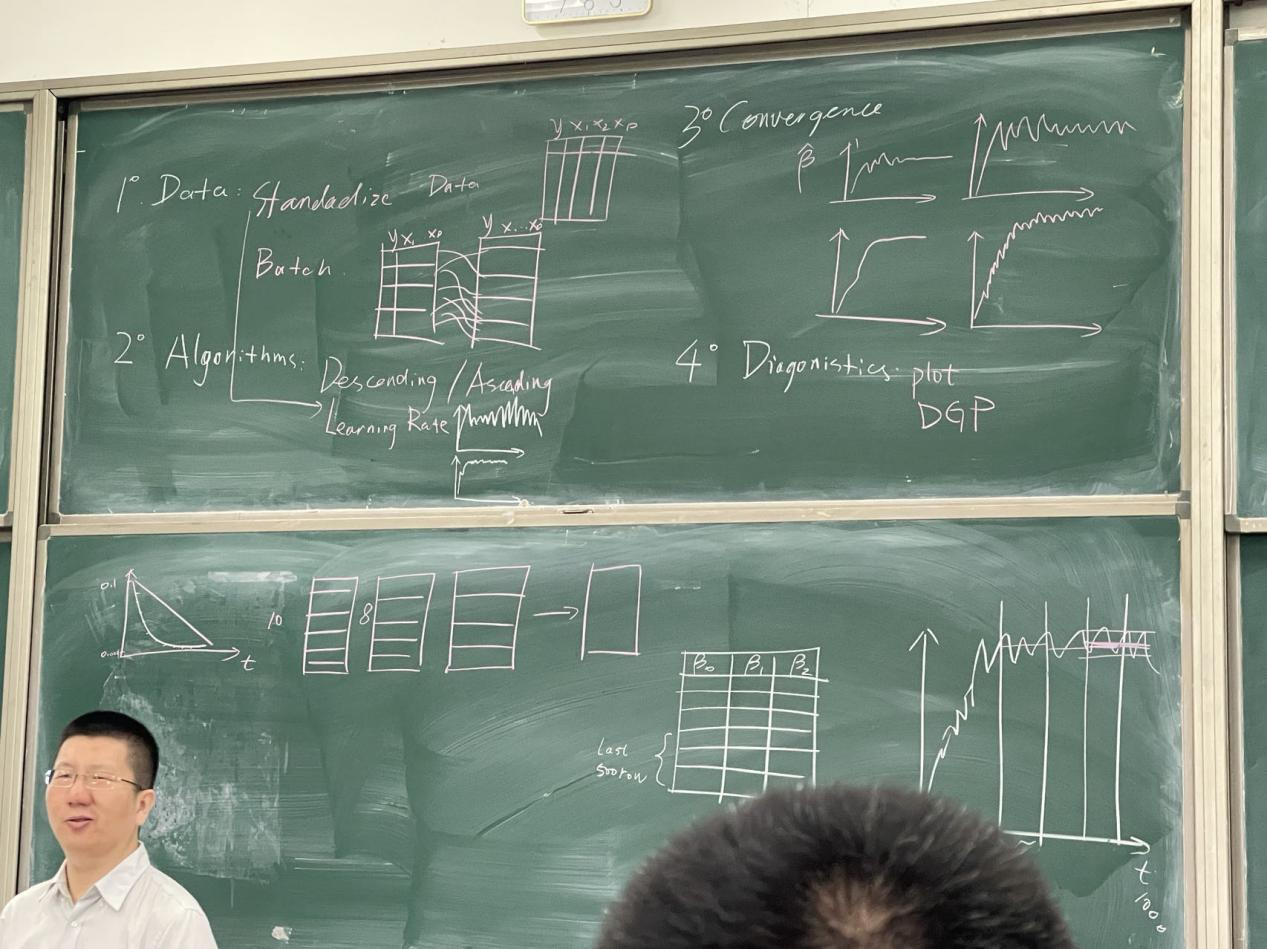 1° Data: Standadize Data
y x₁ x₂ xp
Batch
y x₁ xp
y x...xp
2° Algorithms: Desconding / Ascading
Learning Rate
3° Convergence
β̂
4° Diagonistics: plot
DGP
0.1
t
10
8
β₀ β₁ β₂
Last
500 row
t